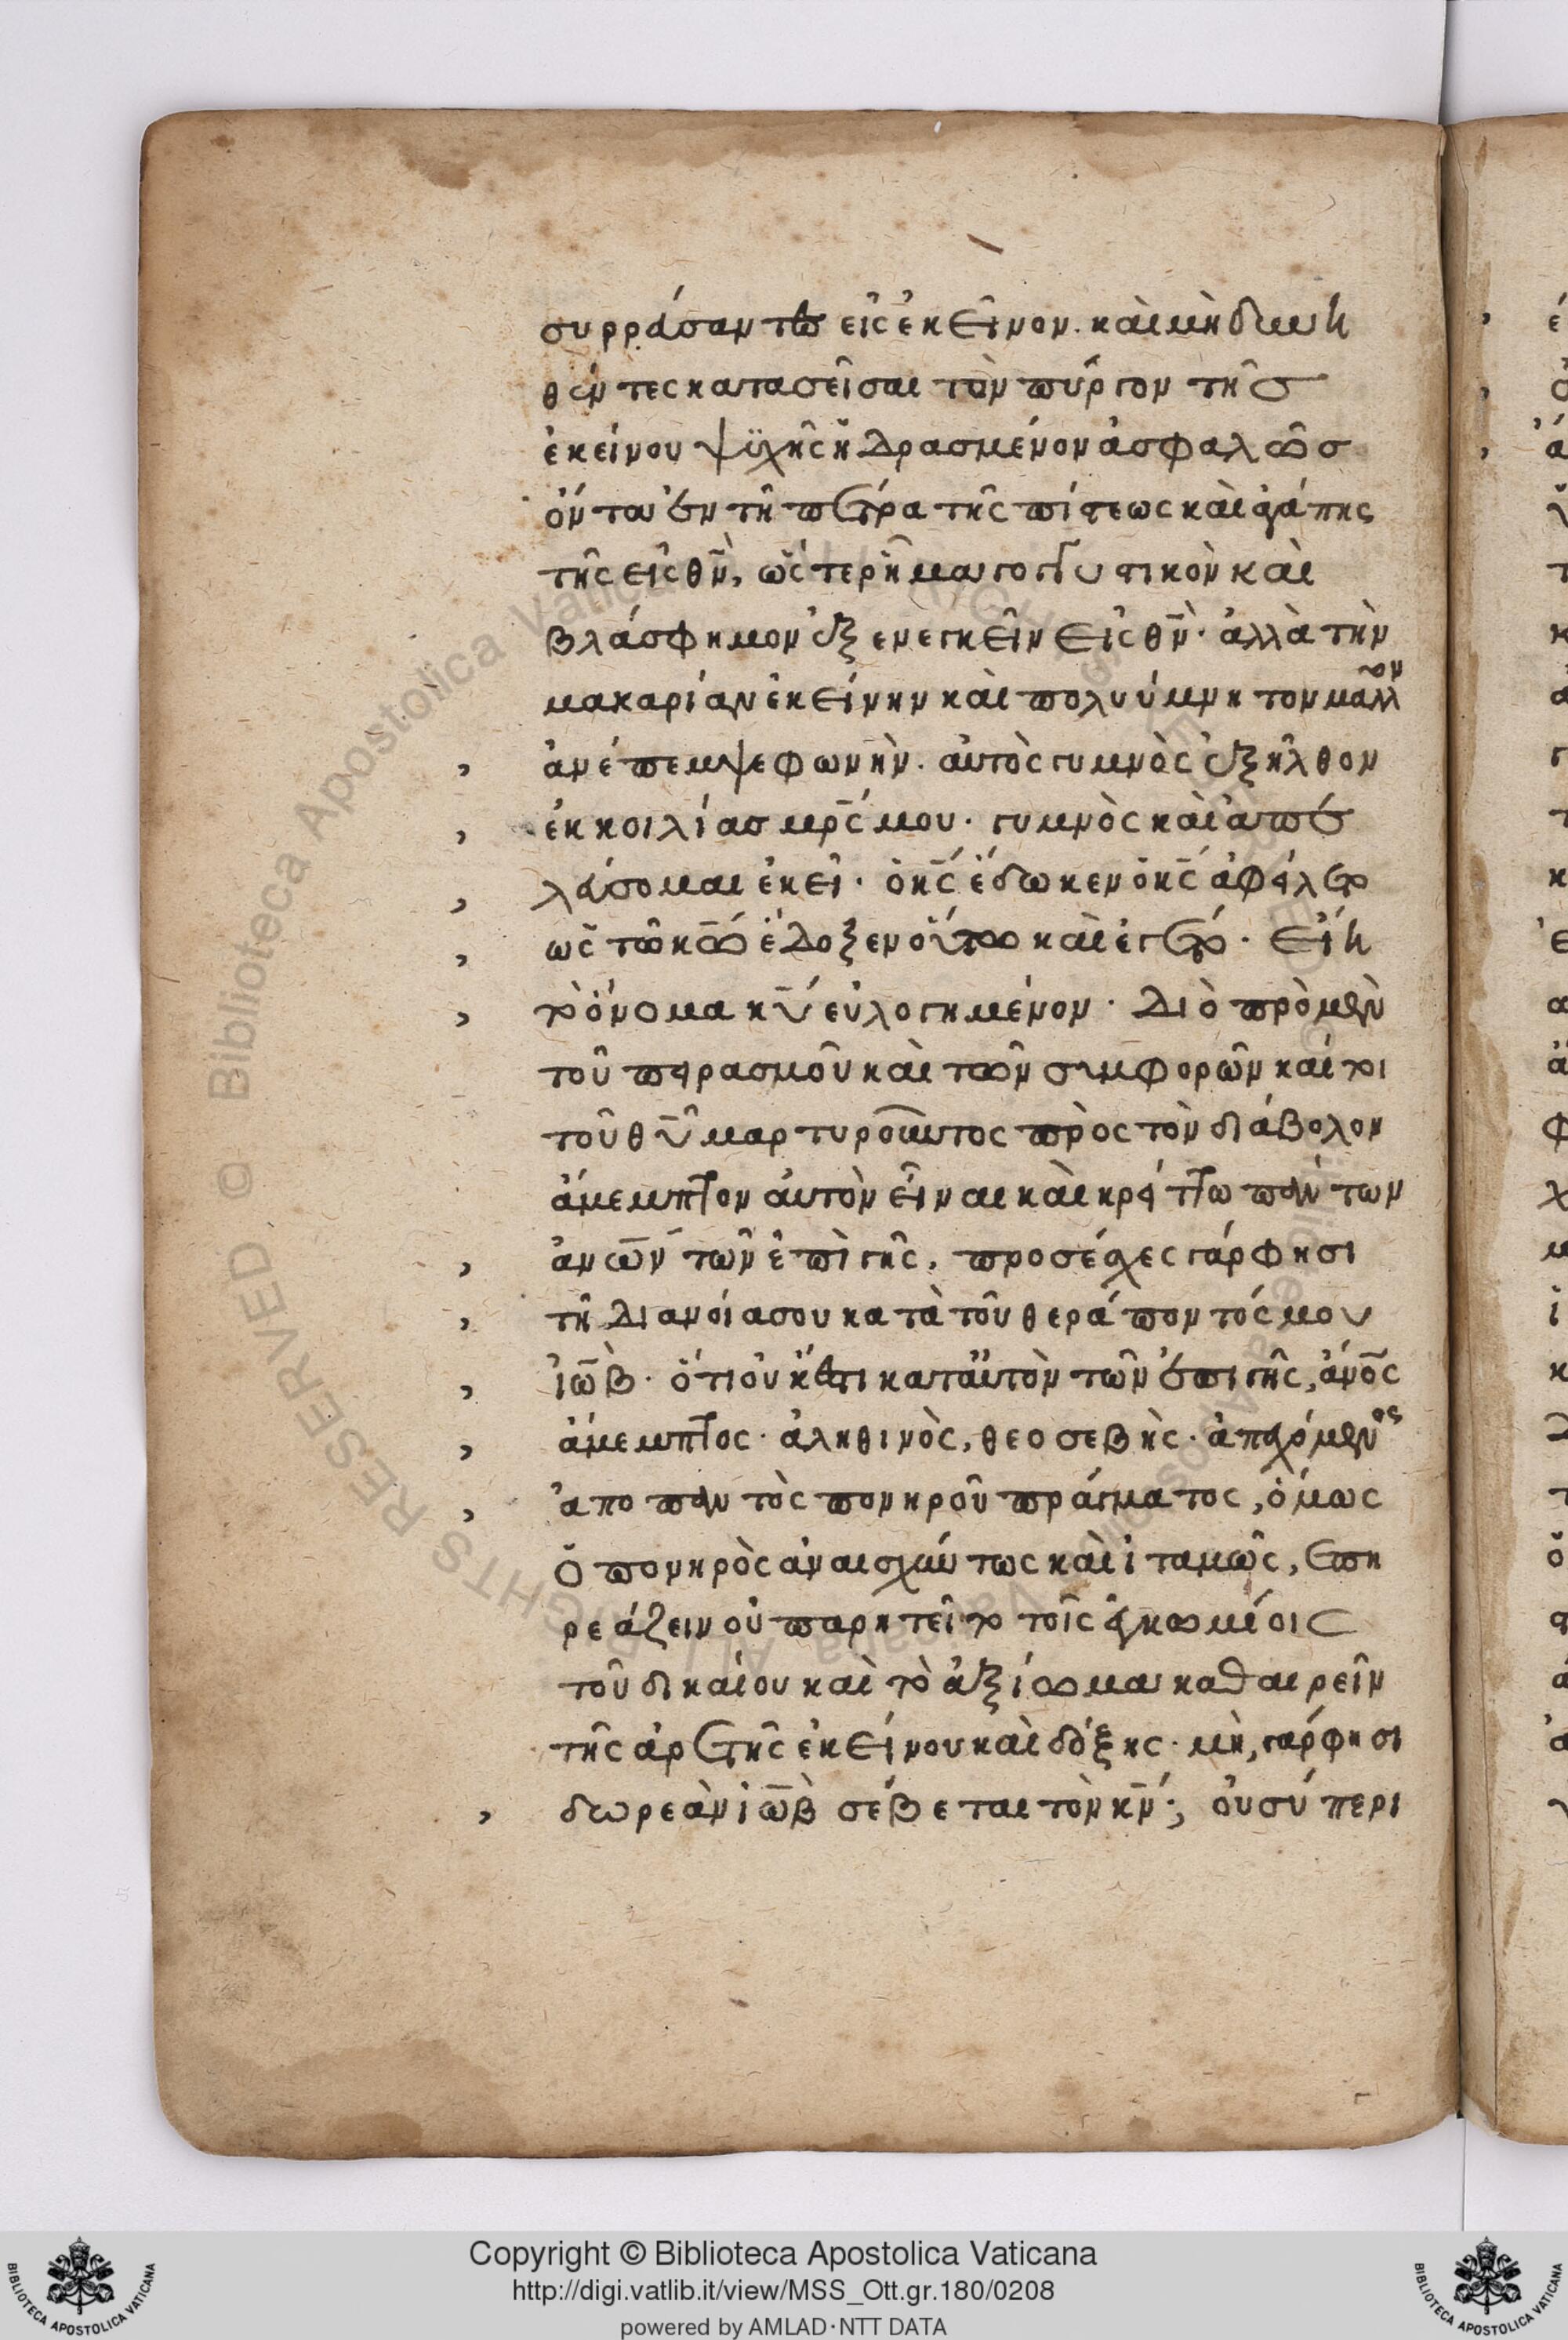 συρράσαντες εἰς ἐκεῖνον. καὶ μὴ δυνη
θέντες κατασεῖσαι τὸν πύργον τῆς
ἐκείνου ψυχῆς ἡδρασμένον ἀσφαλῶς
ὄντα ἐν τῆ πέτρα τῆς πίστεως καὶ ἀγάπης
τῆς εἰς θν̅, ῥῆμα γογγυστικὸν καὶ
βλάσφημον ἐξενεγκεῖν εἰς θν̅· ἀλλὰ τὴν
μακαρίαν ἐκείνην καὶ πολυύμνητον μᾶλλον
ἀνέπεμψε φωνὴν. αὐτὸς γυμνὸς ἐξῆλθον
ἐκ κοιλίας μρ̅ς μου· γυμνὸς καὶ ἀπε
λεύσομαι ἐκεῖ· ὁ κς̅ ἔδωκεν ὁ κς̅ ἀφείλετο
ὡς τῶ κω̅ ἔδοξεν οὕτω καὶ ἐγένετο· εἴη
τὸ ὄνομα κυ̅ εὐλογημένον· Διὸ πρὸ μὲν
τοῦ πειρασμοῦ καὶ τῶν συμφορῶν καίτοι
τοῦ θυ̅ μαρτυροῦντος πρὸς τὸν διάβολον
ἄμεμπτον αὐτὸν εἶναι καὶ κρείττω πάντων
ἀνω̅ν τῶν ἐπὶ γῆς, προσέσχες γάρ φησι
τῆ διανοία σου κατὰ τοῦ θεράποντός μου
ἰὼβ· ὅτι οὐκ ἔστι κατ' αὐτὸν τῶν ἐπὶ γῆς, ἀνο̅ς
ἄμεμπτος· ἀληθινὸς, θεοσεβὴς· ἀπεχόμενος
ἀπο παντὸς πονηροῦ πράγματος, ὅμως
ὁ πονηρὸς ἀναισχύντως καὶ ἰταμῶς, ἐπη
ρεάζειν οὐ παρητεῖτο τοῖς ἐγκωμίοις
τοῦ δικαίου καὶ τὸ ἀξίωμα καθαιρεῖν
τῆς ἀρετῆς ἐκείνου καὶ δόξης· μὴ, γάρ φησι
δωρεὰν ἰὼβ σέβεται τὸν κν̅; οὐ σύ περι
Copyright © Biblioteca Apostolica Vaticana
http://digi.vatlib.it/view/MSS_Ott.gr.180/0208
powered by AMLAD·NTT DATA